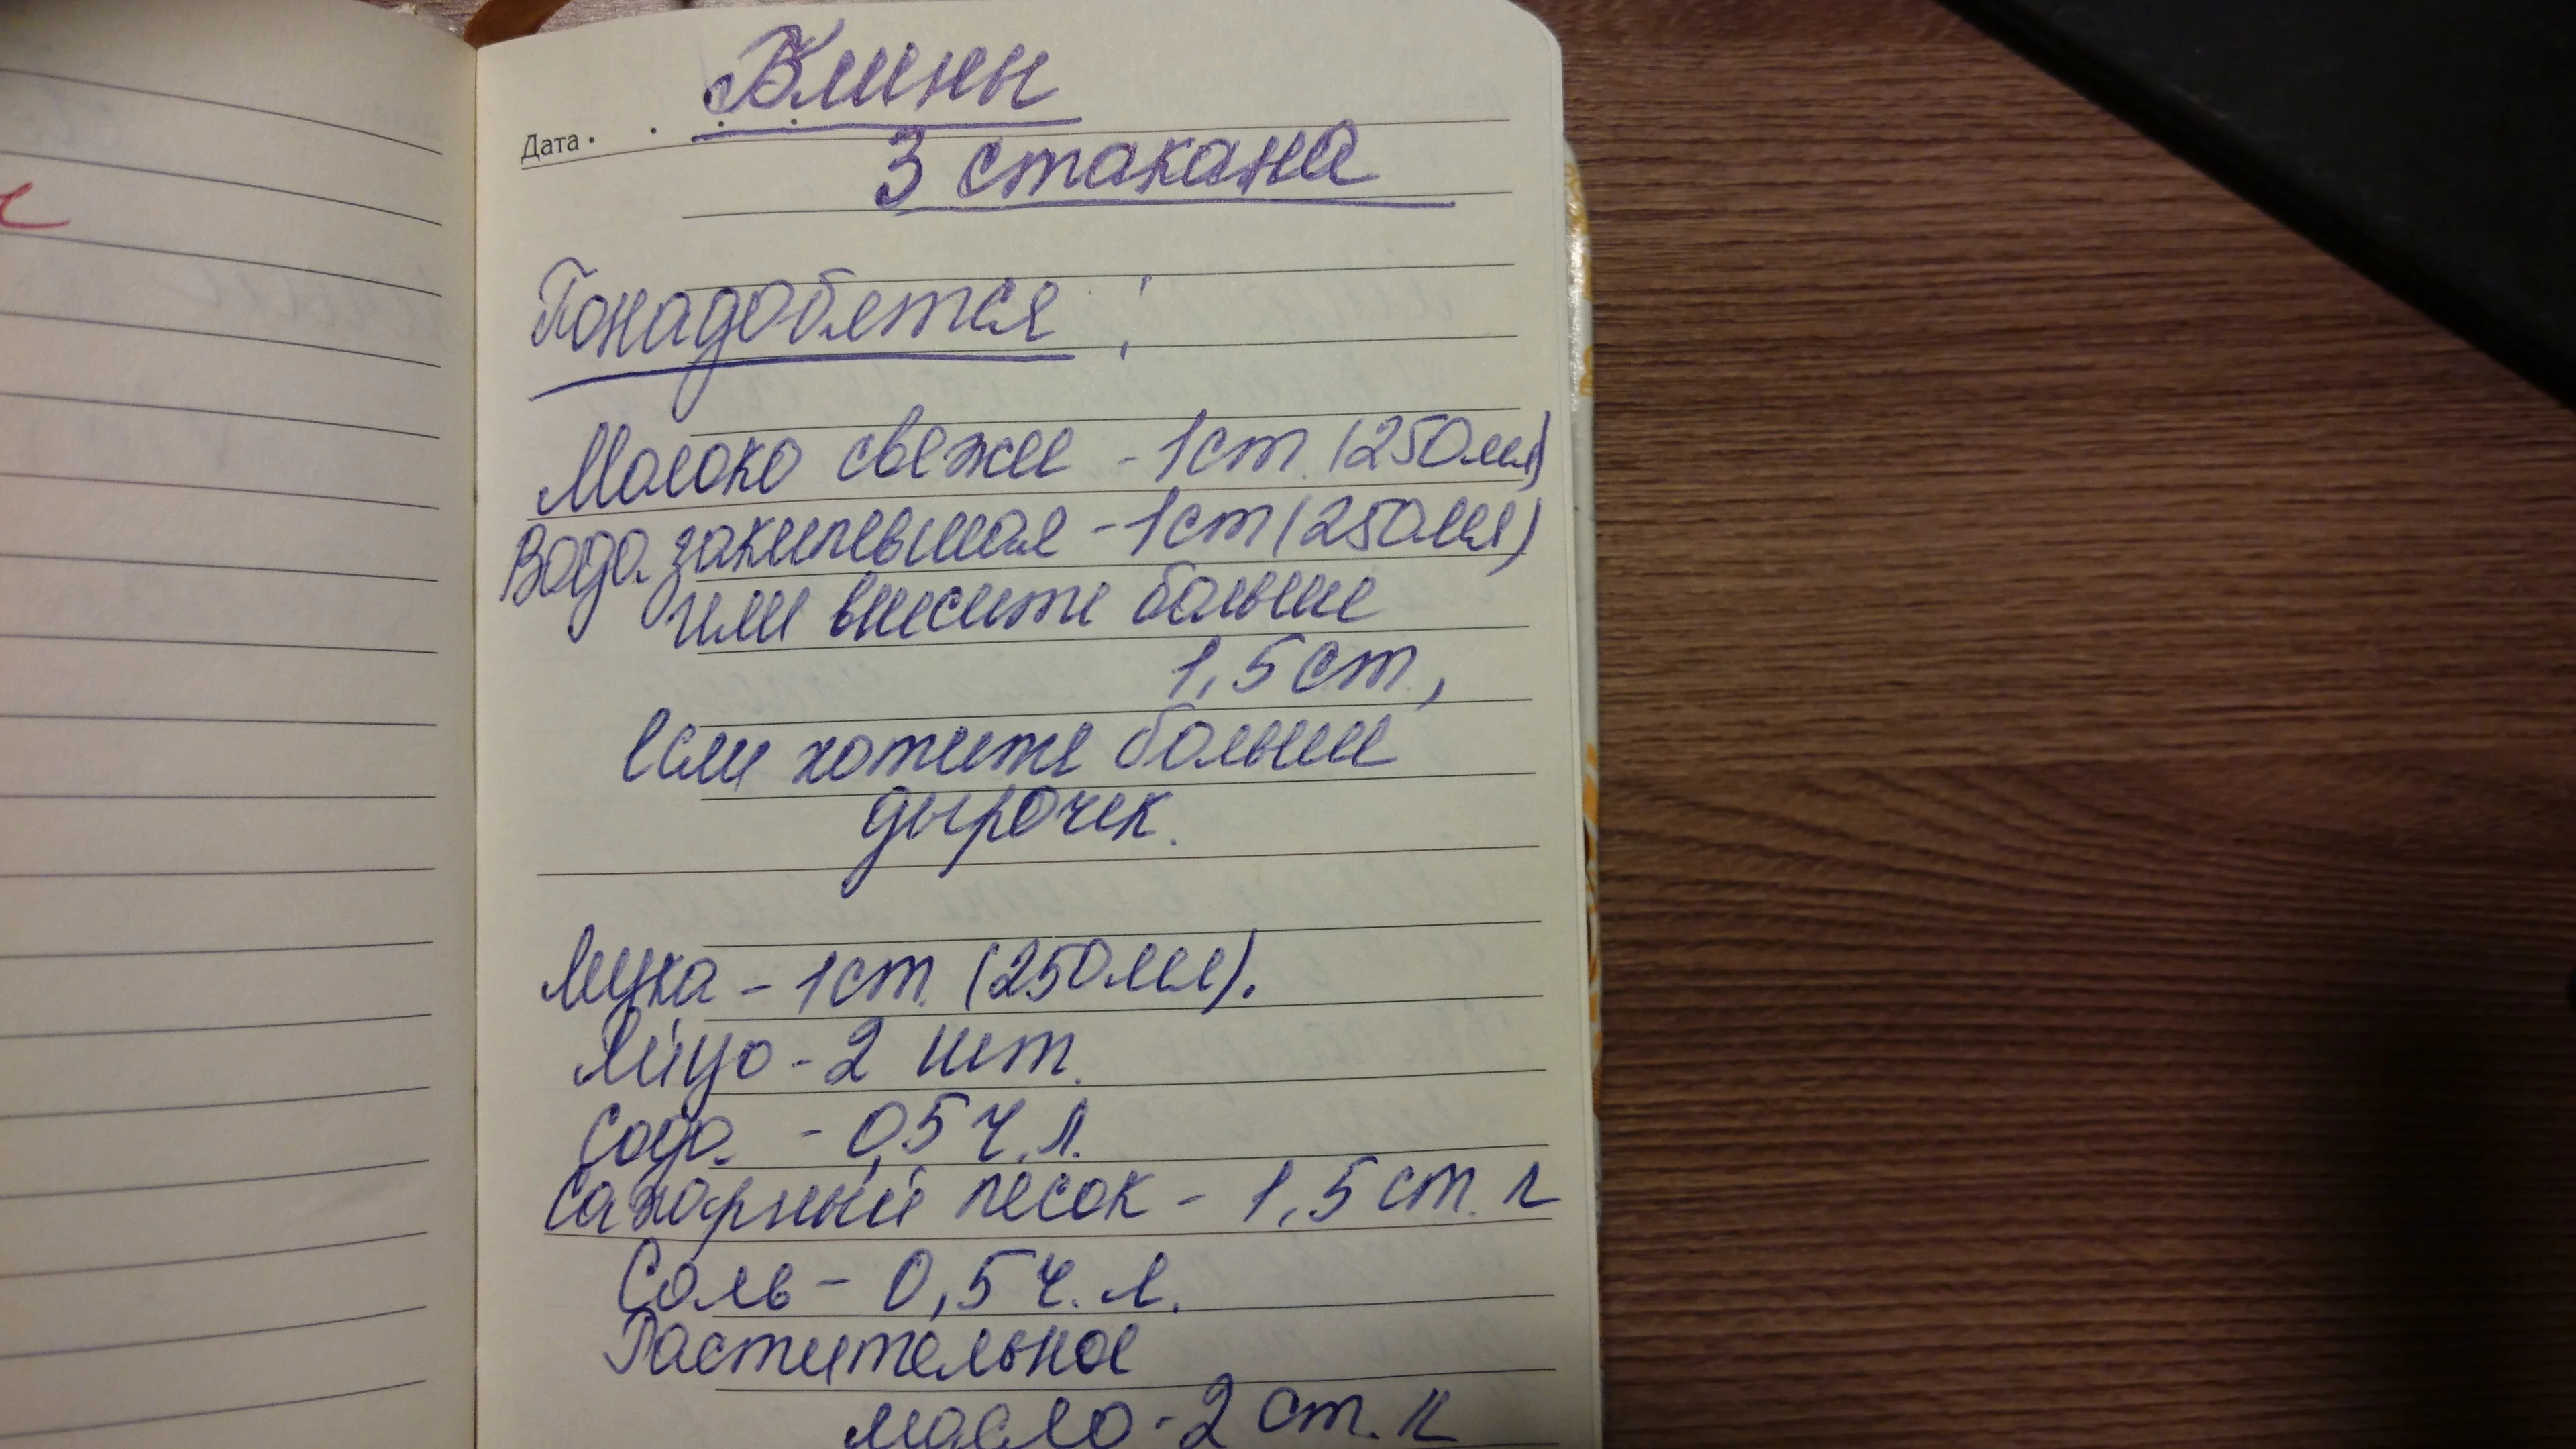 Блины
Дата
3 стакана
Понадобятся:
Молоко свежее - 1 ст. (250 мл)
Вода закипевшая - 1 ст (250 мл)
или внесите больше
1,5 ст.,
если хотите больше
дырочек.
Мука - 1 ст. (250 мл).
Яйцо - 2 шт.
Сода - 0,5 ч. л.
Сахарный песок - 1,5 ст. л
Соль - 0,5 ч. л.
Растительное
масло - 2 ст. л